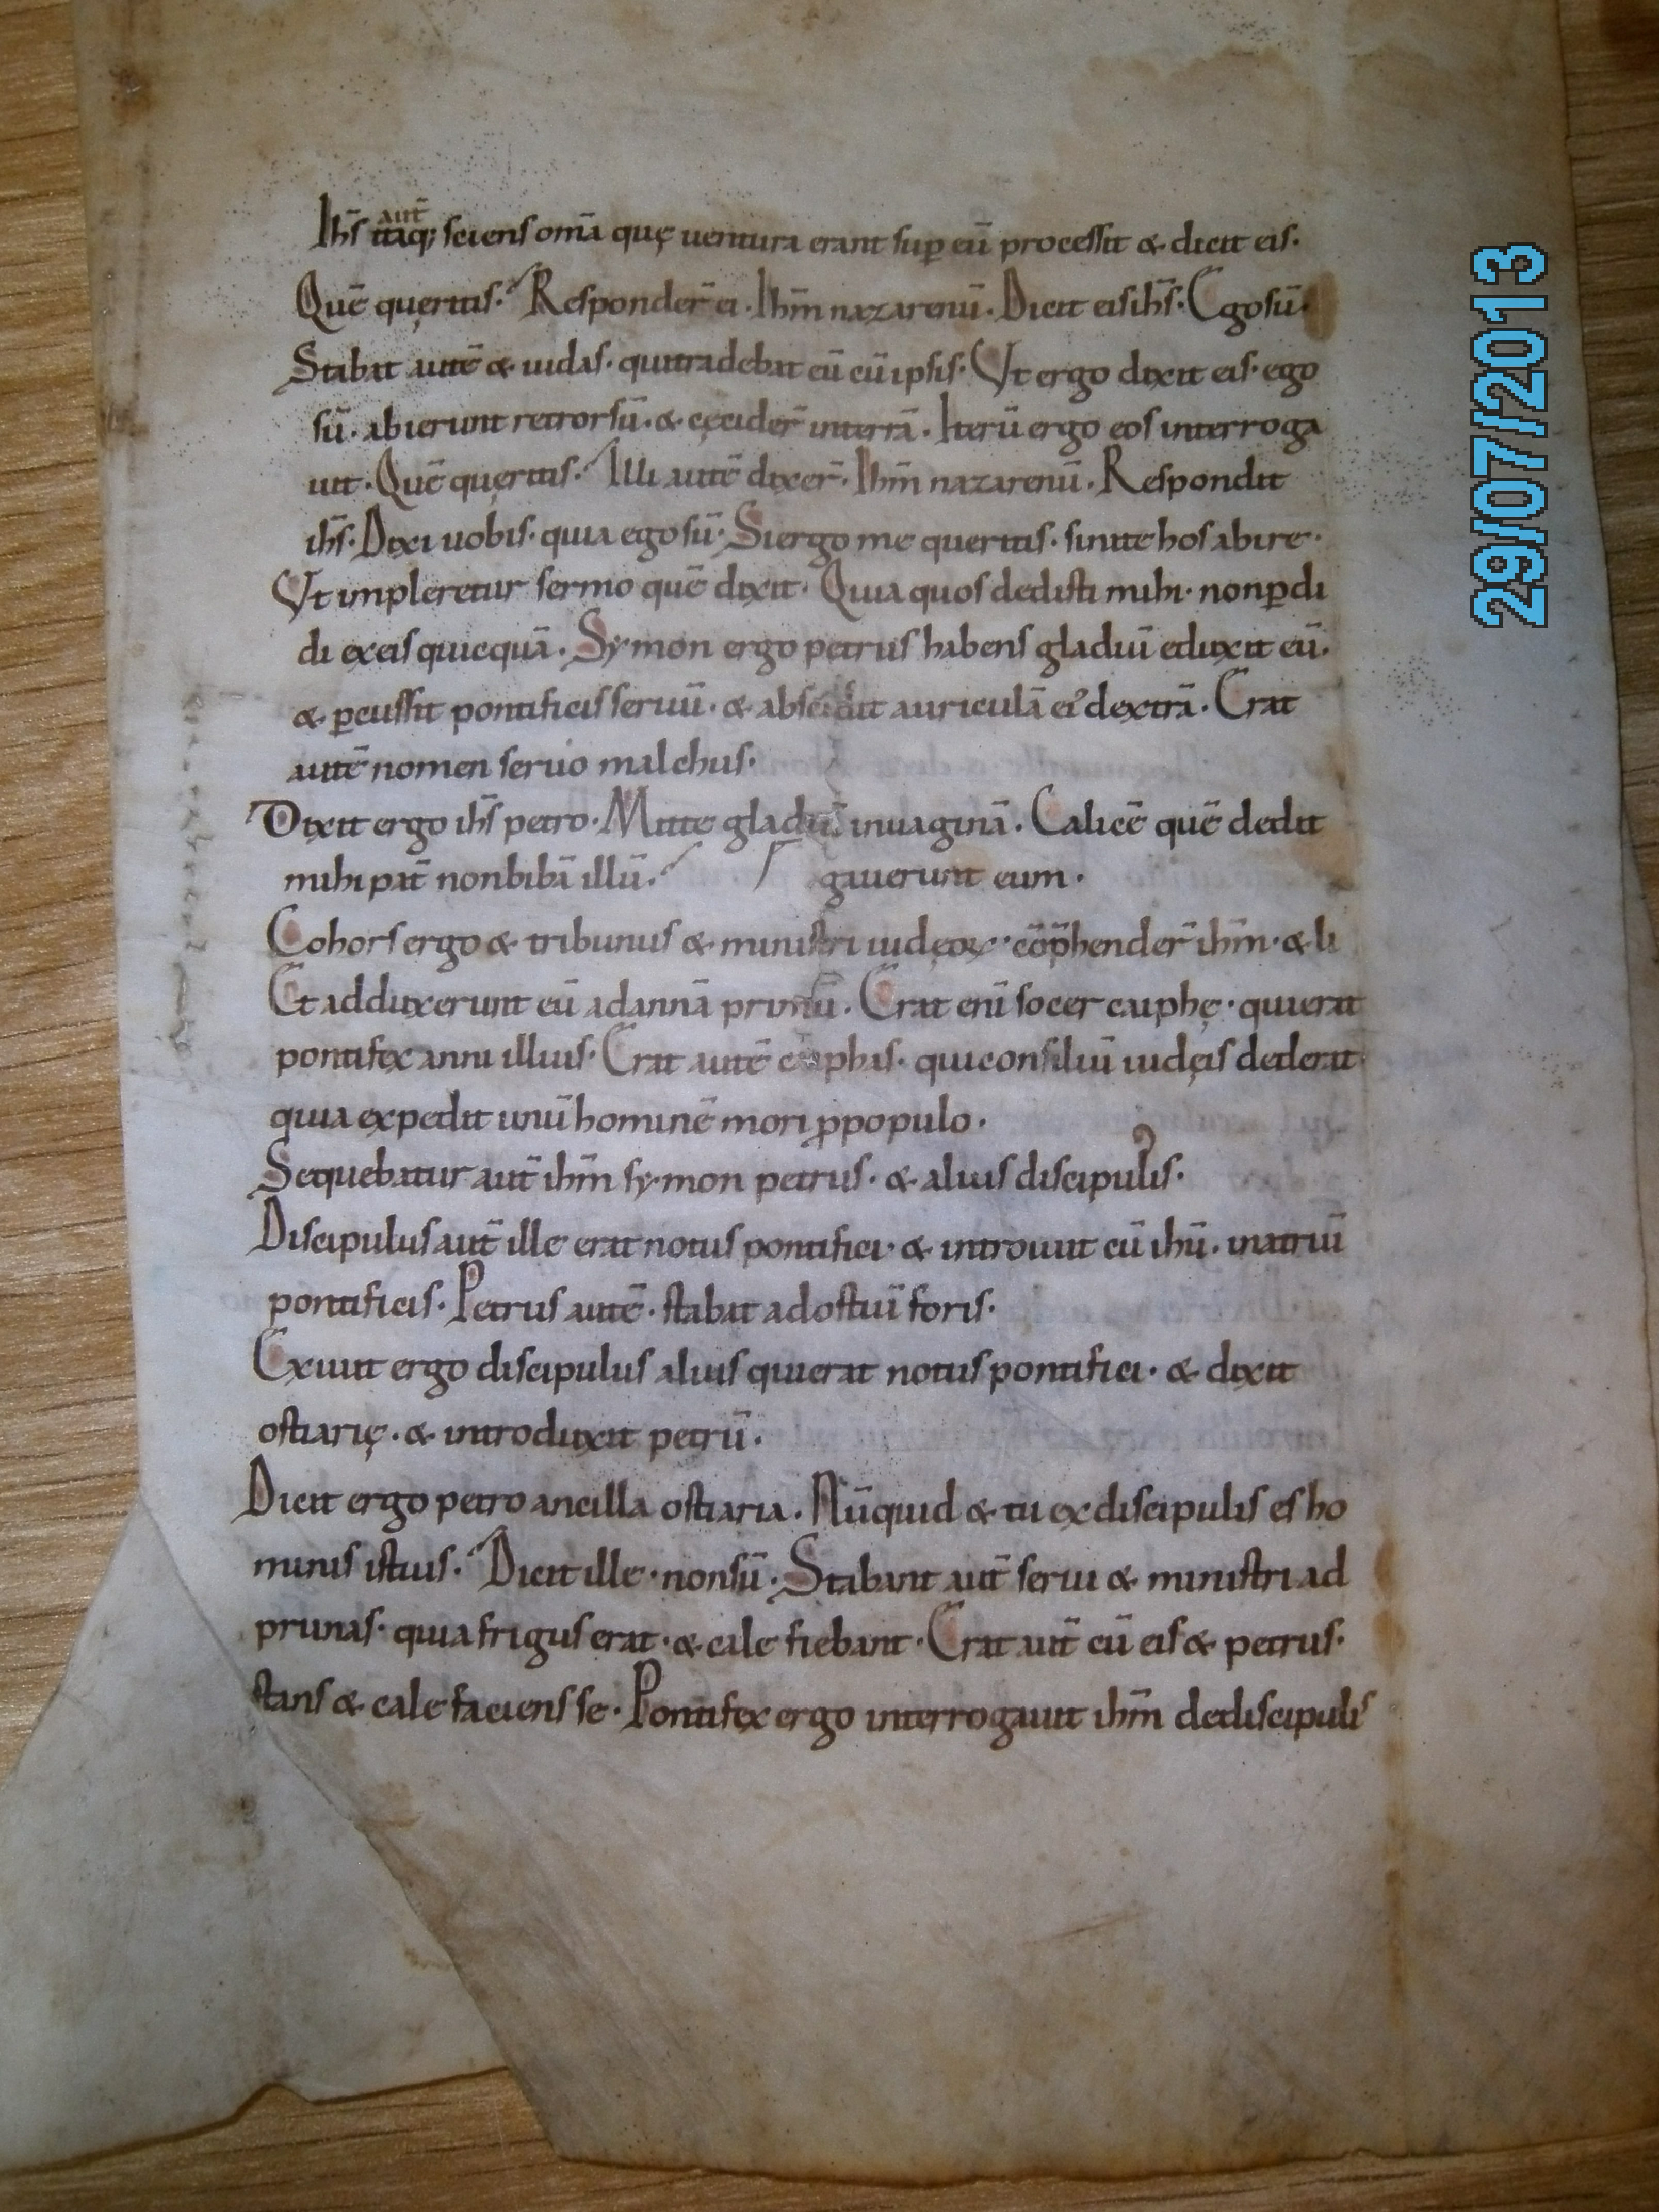 aut̄
Ih̄s itaq; sciens om̄a quę uentura erant sup̱ eū processit & dicit eis.
Quē quęritis. Responder̄ ei. Ih̄m nazarenū. Dicit eis ih̄s. Ego sū.
Stabat autē & iudas. qui tradebat eū cū ipsis. Vt ergo dixit eis. ego
sū. abierunt retrorsū. & cęcider̄ in terrā. Iterū ergo eos interroga
uit. Quē quęritis. Illi autē dixer̄. Ih̄m nazarenū. Respondit
ih̄s. Dixi uobis. quia ego sū. Si ergo me queritis. sinite hos abire.
Vt impleretur sermo quē dixit. Quia quos dedisti mihi. non p̱di
di ex eis quicquā. Symon ergo petrus habens gladiū eduxit eū.
& p̱cussit pontificis seruū. & abscidit auriculā ei᾽ dextrā. Erat
autē nomen seruo malchus.
Dixit ergo ih̄s petro. Mitte gladiū in uaginā. Calicē quē dedit
mihi pat̄ non bibā illū. gauerunt eum.
Cohors ergo & tribunus & ministri iudęoꝝ. cōp̄hender̄ ih̄m. & li
Et adduxerunt eū ad annā primū. Erat eni socer caiphę. qui erat
pontifex anni illius. Erat autē caiphas. qui consiliū iudęis dederat
quia expedit unū hominē mori ꝓ populo.
Sequebatur aut̄ ih̄m symon petrus. & alius discipulis.
Discipulus aut̄ ille erat notus pontifici. & introiuit cū ih̄u. in atriū
pontificis. Petrus autē. stabat ad ostiū foris.
Exiuit ergo discipulus alius qui erat notus pontifici. & dixit
ostiarię. & introduxit petrū.
Dicit ergo petro ancilla ostiaria. Nūquid & tu ex discipulis es ho
minis istius. Dicit ille. non sū. Stabant aut̄ serui & ministri ad
prunas. quia frigus erat. & cale fiebant. Erat aut̄ cū eis & petrus.
stans & cale faciens se. Pontifex ergo interrogauit ih̄m de discipulis
29/07/2013